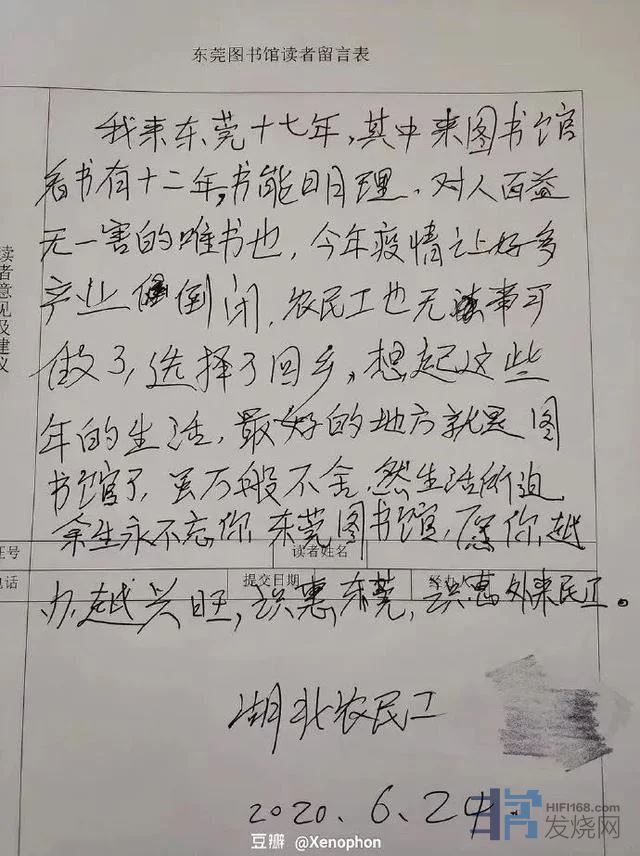 东莞图书馆读者留言表
我来东莞十七年,其中来图书馆
看书有十二年,书能明理、对人百益
无一害的唯书也,今年疫情让好多
产业倒闭,农民工也无事可
做了,选择了回乡,想起这些
年的生活,最好的地方就是图
书馆了,虽万般不舍,然生活所迫
余生永不忘你,东莞图书馆,愿你越
办越兴旺,识惠东莞,识惠外来民工。
读者意见及建议
证号
读者姓名
电话
提交日期
经办人
湖北农民工
2020.6.24.
豆瓣 @Xenophon
HIFI168.com
发烧网